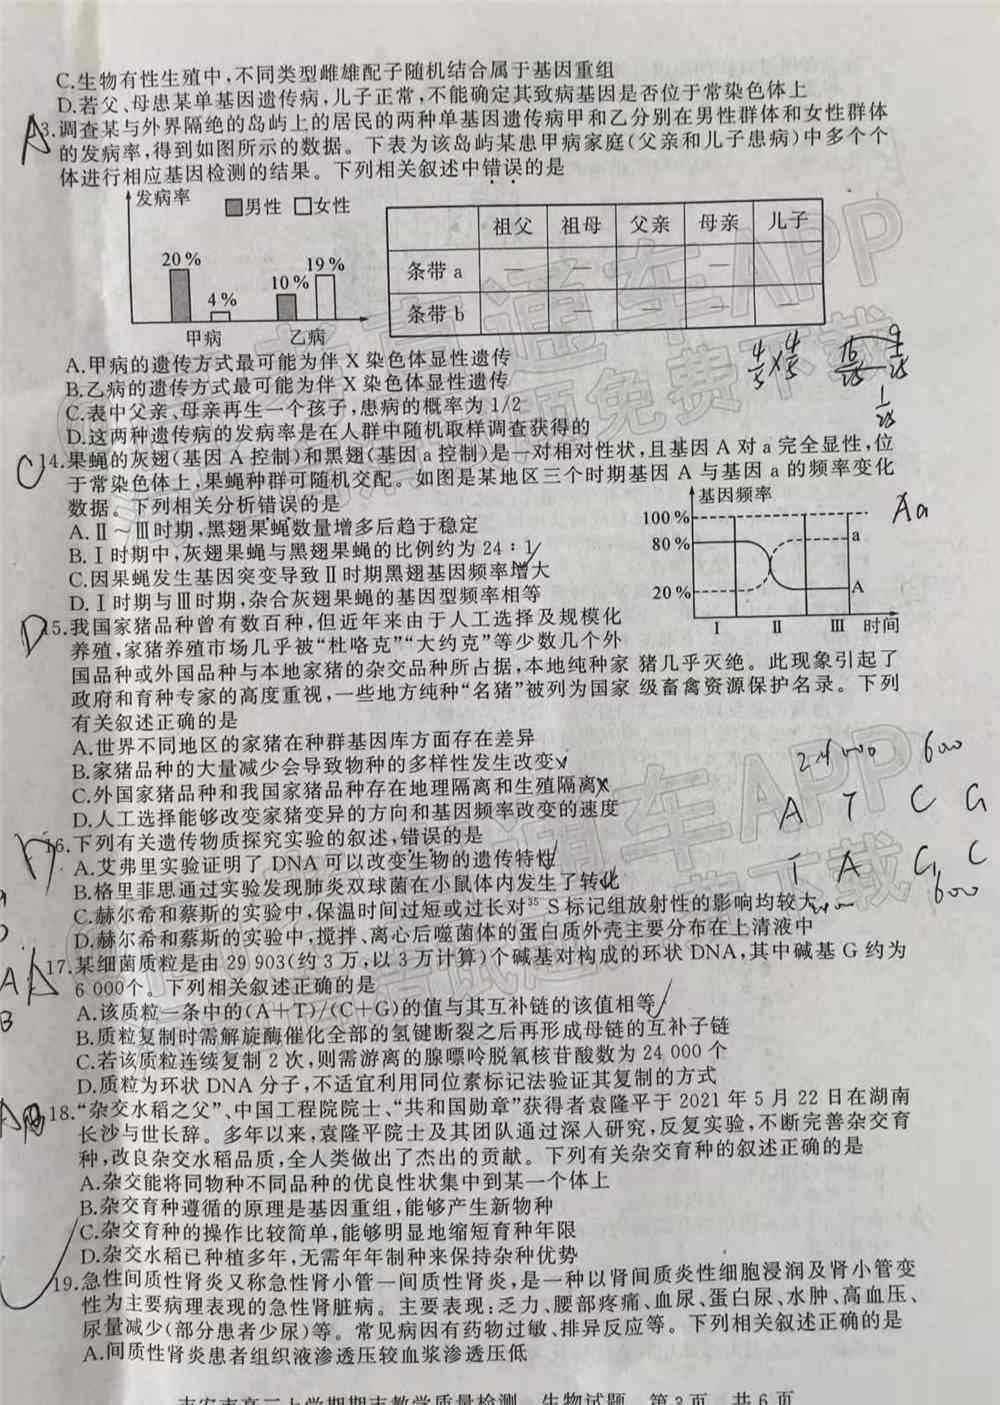 C.生物有性生殖中,不同类型雌雄配子随机结合属于基因重组
D.若父、母患某单基因遗传病,儿子正常,不能确定其致病基因是否位于常染色体上
A
3.调查某与外界隔绝的岛屿上的居民的两种单基因遗传病甲和乙分别在男性群体和女性群体
的发病率,得到如图所示的数据。下表为该岛屿某患甲病家庭(父亲和儿子患病)中多个个
体进行相应基因检测的结果。下列相关叙述中错误的是
发病率
男性 女性
20%
4%
10%
19%
甲病 乙病
祖父 祖母 父亲 母亲 儿子
条带 a — — —
条带 b — — —
A.甲病的遗传方式最可能为伴 X 染色体显性遗传
B.乙病的遗传方式最可能为伴 X 染色体显性遗传
C.表中父亲、母亲再生一个孩子,患病的概率为 1/2
D.这两种遗传病的发病率是在人群中随机取样调查获得的
C
14.果蝇的灰翅(基因 A 控制)和黑翅(基因 a 控制)是一对相对性状,且基因 A 对 a 完全显性,位
于常染色体上,果蝇种群可随机交配。如图是某地区三个时期基因 A 与基因 a 的频率变化
数据。下列相关分析错误的是
A.Ⅱ~Ⅲ时期,黑翅果蝇数量增多后趋于稳定
B.Ⅰ时期中,灰翅果蝇与黑翅果蝇的比例约为 24∶1
C.因果蝇发生基因突变导致Ⅱ时期黑翅基因频率增大
D.Ⅰ时期与Ⅲ时期,杂合灰翅果蝇的基因型频率相等
基因频率
100%
80%
20%
a
A
Ⅰ Ⅱ Ⅲ 时间
Aa
D
15.我国家猪品种曾有数百种,但近年来由于人工选择及规模化
养殖,家猪养殖市场几乎被“杜咯克”“大约克”等少数几个外
国品种或外国品种与本地家猪的杂交品种所占据,本地纯种家猪几乎灭绝。此现象引起了
政府和育种专家的高度重视,一些地方纯种“名猪”被列为国家级畜禽资源保护名录。下列
有关叙述正确的是
A.世界不同地区的家猪在种群基因库方面存在差异
B.家猪品种的大量减少会导致物种的多样性发生改变
C.外国家猪品种和我国家猪品种存在地理隔离和生殖隔离
D.人工选择能够改变家猪变异的方向和基因频率改变的速度
A T C G
T A G C
600
16.下列有关遗传物质探究实验的叙述,错误的是
A.艾弗里实验证明了 DNA 可以改变生物的遗传特性
B.格里菲思通过实验发现肺炎双球菌在小鼠体内发生了转化
C.赫尔希和蔡斯的实验中,保温时间过短或过长对³⁵S 标记组放射性的影响均较大
D.赫尔希和蔡斯的实验中,搅拌、离心后噬菌体的蛋白质外壳主要分布在上清液中
17.某细菌质粒是由 29 903(约 3 万,以 3 万计算)个碱基对构成的环状 DNA,其中碱基 G 约为
6 000个。下列相关叙述正确的是
A.该质粒一条中的(A+T)/(C+G)的值与其互补链的该值相等
B.质粒复制时需解旋酶催化全部的氢键断裂之后再形成母链的互补子链
C.若该质粒连续复制 2 次,则需游离的腺嘌呤脱氧核苷酸数为 24 000 个
D.质粒为环状 DNA 分子,不适宜利用同位素标记法验证其复制的方式
A
18.“杂交水稻之父”、中国工程院院士、“共和国勋章”获得者袁隆平于 2021 年 5 月 22 日在湖南
长沙与世长辞。多年以来,袁隆平院士及其团队通过深入研究,反复实验,不断完善杂交育
种,改良杂交水稻品质,全人类做出了杰出的贡献。下列有关杂交育种的叙述正确的是
A.杂交能将同物种不同品种的优良性状集中到某一个体上
B.杂交育种遵循的原理是基因重组,能够产生新物种
C.杂交育种的操作比较简单,能够明显地缩短育种年限
D.杂交水稻已种植多年,无需年年制种来保持杂种优势
19.急性间质性肾炎又称急性肾小管—间质性肾炎,是一种以肾间质炎性细胞浸润及肾小管变
性为主要病理表现的急性肾脏病。主要表现:乏力、腰部疼痛、血尿、蛋白尿、水肿、高血压、
尿量减少(部分患者少尿)等。常见病因有药物过敏、排异反应等。下列相关叙述正确的是
A.间质性肾炎患者组织液渗透压较血浆渗透压低
吉安市高三上学期期末教学质量检测 生物试题 第 3 页 共 6 页